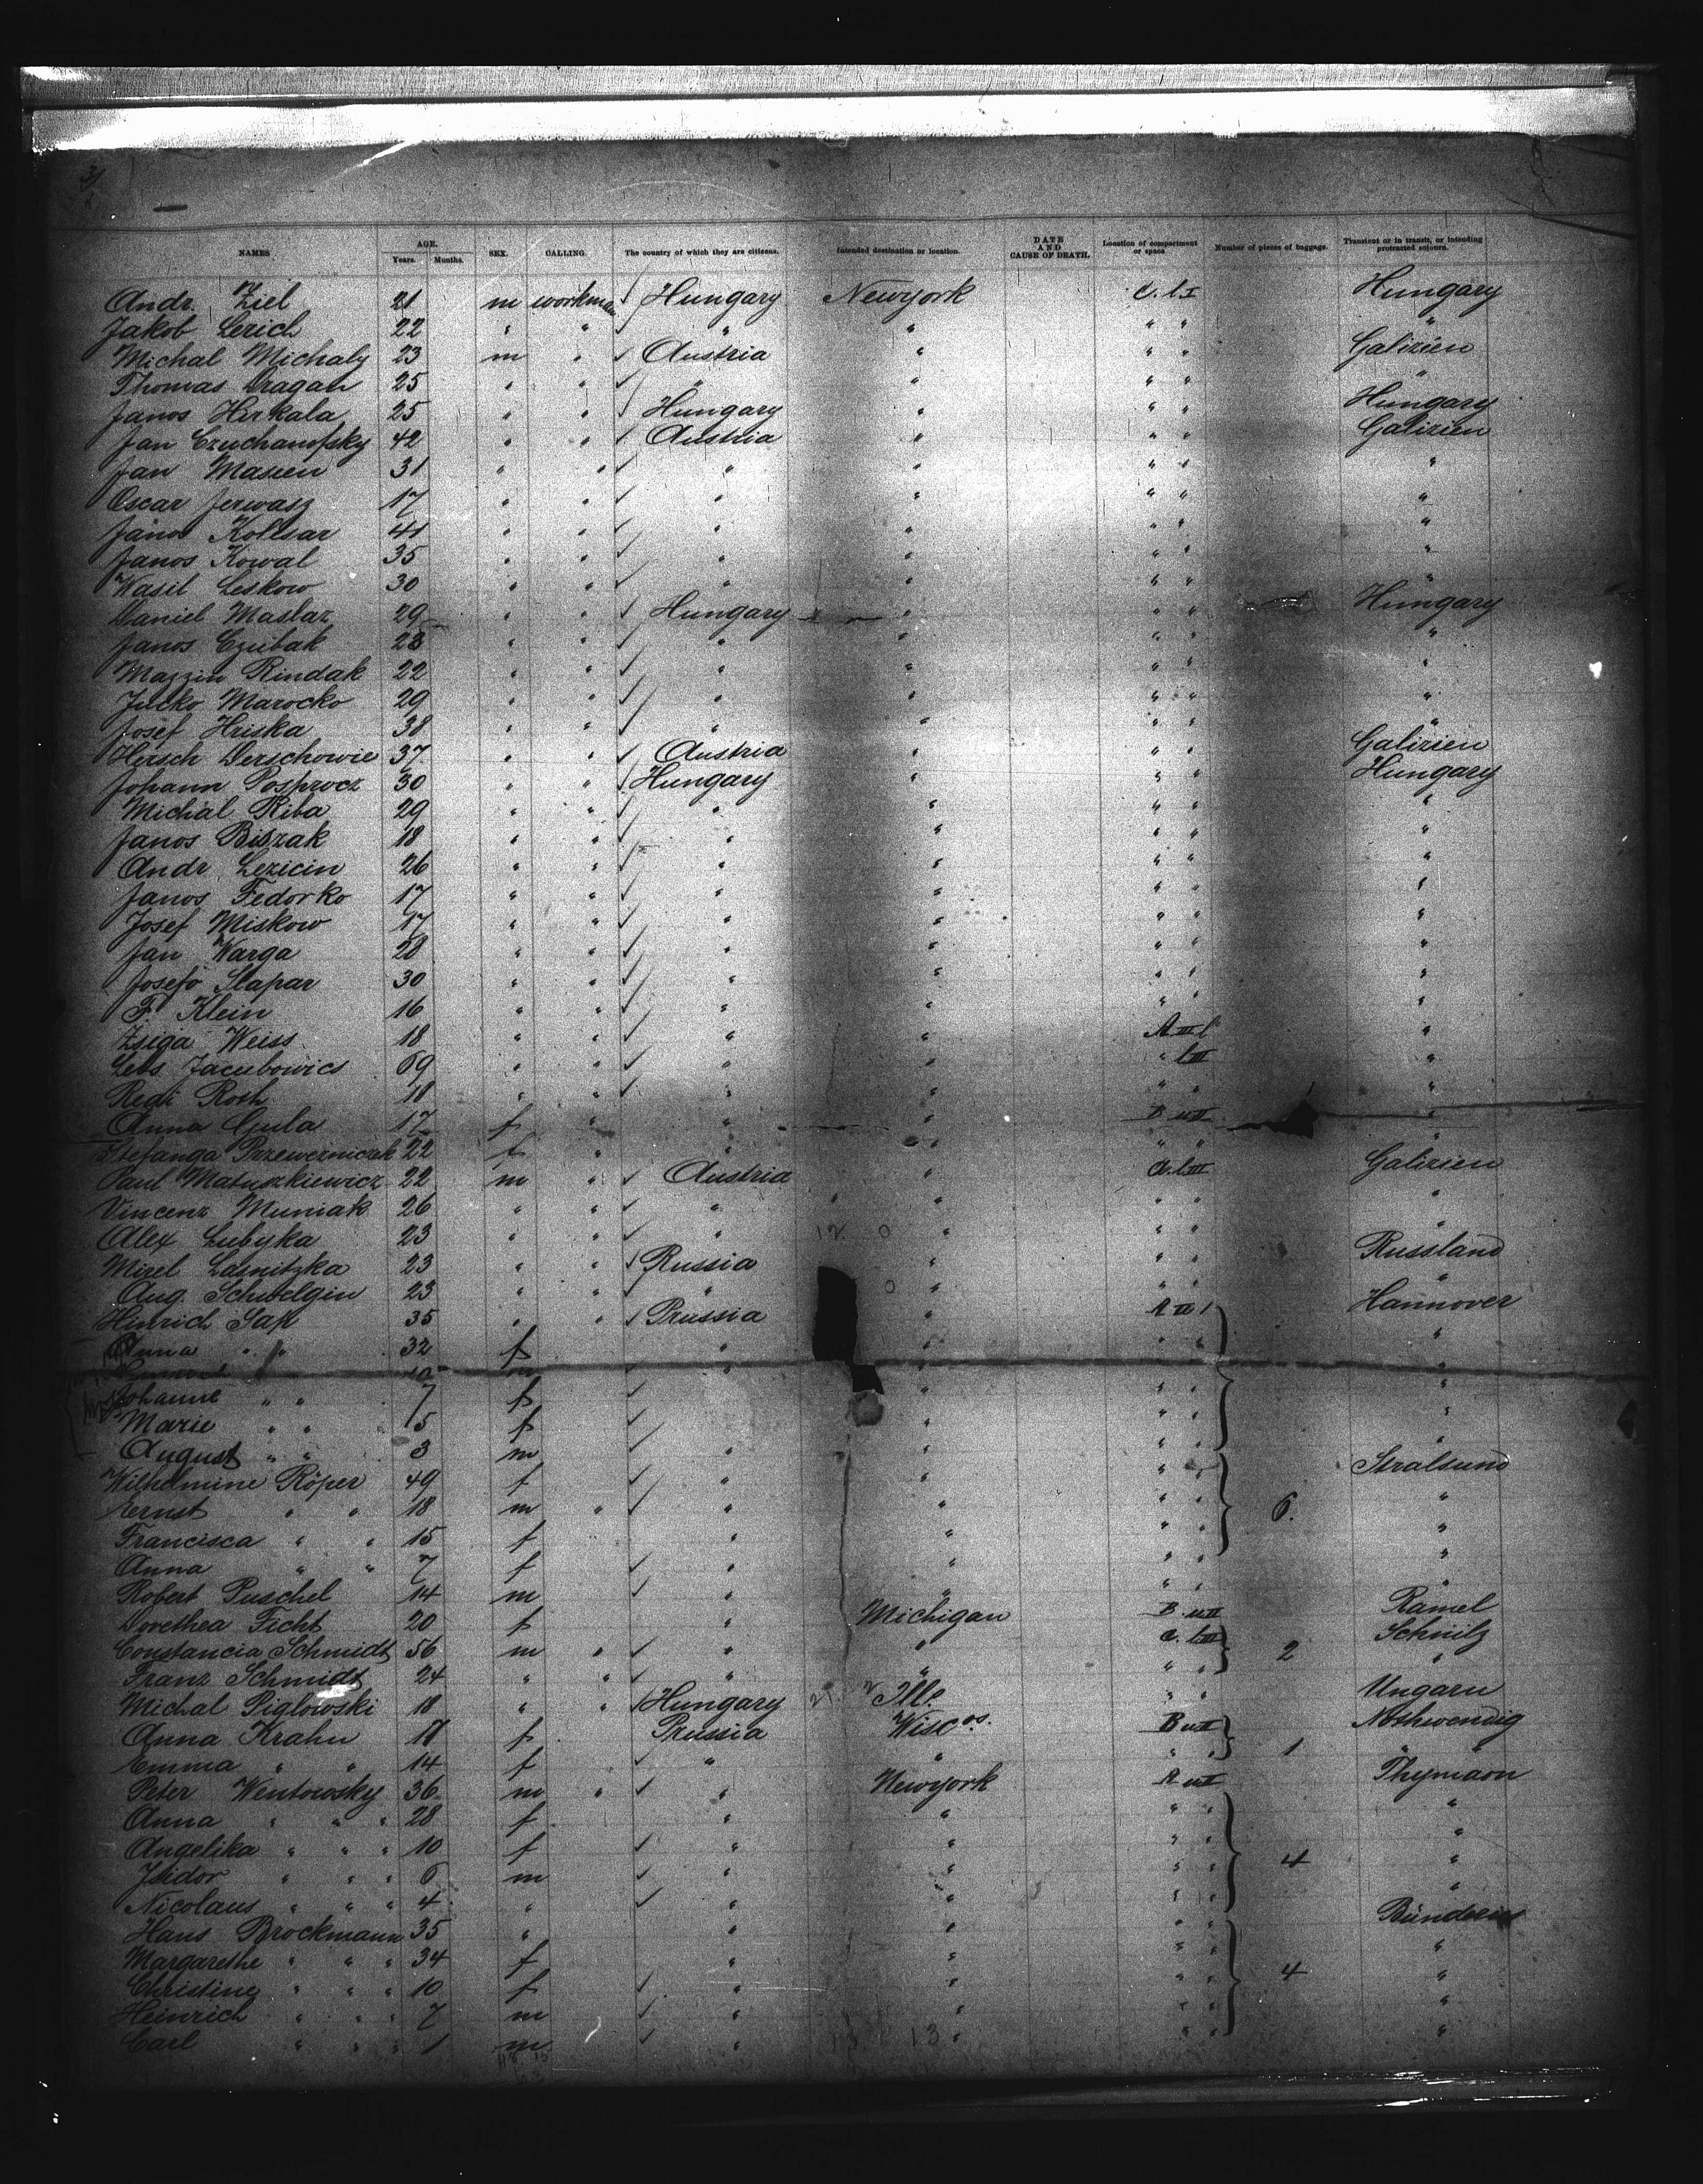 NAMES AGE. Years. Months. SEX. CALLING. The country of which they are citizens. Intended destination or location. DATE AND CAUSE OF DEATH. Location of compartment or space Number of pieces of baggage. Transient or in transit, or intending protracted sojourn.
Andr. Ziel 21 m workman Hungary Newyork Hungary
Jakob Lerich 22 " " " " " " "
Michal Michaly 23 m " Austria " " " Galizien
Thomas Dragan 25 " " " " " " "
Janos Hirkala 25 " " Hungary " " " Hungary
Jan Czuchanofsky 42 " " Austria " " " Galizien
Jan Masien 31 " " " " " " "
Oscar Jerwasz 17 " " " " " " "
Janos Kollsar 41 " " " " " " "
Janos Kowal 35 " " " " " " "
Wasil Leskow 30 " " " " " " "
Daniel Maslar 29 " " Hungary " " " Hungary
Janos Czubak 28 " " " " " " "
Mazzin Rindak 22 " " " " " " "
Jucko Marocko 29 " " " " " " "
Josef Hriska 38 " " " " " " "
Hersch Derschowie 37 " " Austria " " " Galizien
Johann Posprocz 30 " " Hungary " " " Hungary
Michal Riba 29 " " " " " " "
Janos Biszak 18 " " " " " " "
Andr. Lezicin 26 " " " " " " "
Janos Fedorko 17 " " " " " " "
Josef Miskow 17 " " " " " " "
Jan Warga 28 " " " " " " "
Josefo Slapar 30 " " " " " " "
F. Klein 16 " " " " " " "
Zsiga Weiss 18 " " " " "
Jacubowics 69 " " " " "
Regi Rosh 18 " " " " " " "
Anna Gula 17 f " " " B u II "
Stefanga Przewerniczek 22 f " " " " " "
Paul Matuszkiewicz 22 m " Austria " Galizien
Vincenz Muniak 26 " " " " " " "
Alex Lubyka 23 " " " " " " "
Misel Lesnitzka 23 " " Russia " " " Russland
Aug. Schwelgin 23 " " " " " " "
Hinrich Sak 35 " " Prussia " Hannover
Anna " " 32 f " " " " "
Johanne " " 7 f " " " "
Marie " " 5 f " " " "
August " " 3 m " " " " "
Wilhelmine Röper 49 f " " " " Stralsund
Ernst " " 18 m " " " " " 6. "
Francisca " " 15 f " " " " "
Anna " " 7 f " " " " "
Robert Puschel 14 m " " " " "
Dorethea Ficht 20 f " Michigan B. u II Ramel
Constancia Schmidt 56 m " " " 2 Schnilz
Franz Schmidt 24 " " " " " " "
Michal Piglowski 18 " " Hungary Ills. " " Ungarn
Anna Krahn 18 f Prussia Wiscos. B u II 1 Nothwendig
Emma " " 14 f " " " " " "
Peter Wentowsky 36 m " " Newyork A u I Thymaon
Anna " " " 28 f " " " " "
Angelika " " " 10 f " " " " 4 "
Isidor " " " 6 m " " " " "
Nicolaus " " " 4 " " " " " "
Hans Brockmann 35 " " " " "
Margarethe " " " 34 f " " " " "
Christine " " " 10 f " " " " 4 "
Heinrich " " " 7 m " " " " "
Carl " " " 1 m " " " " "